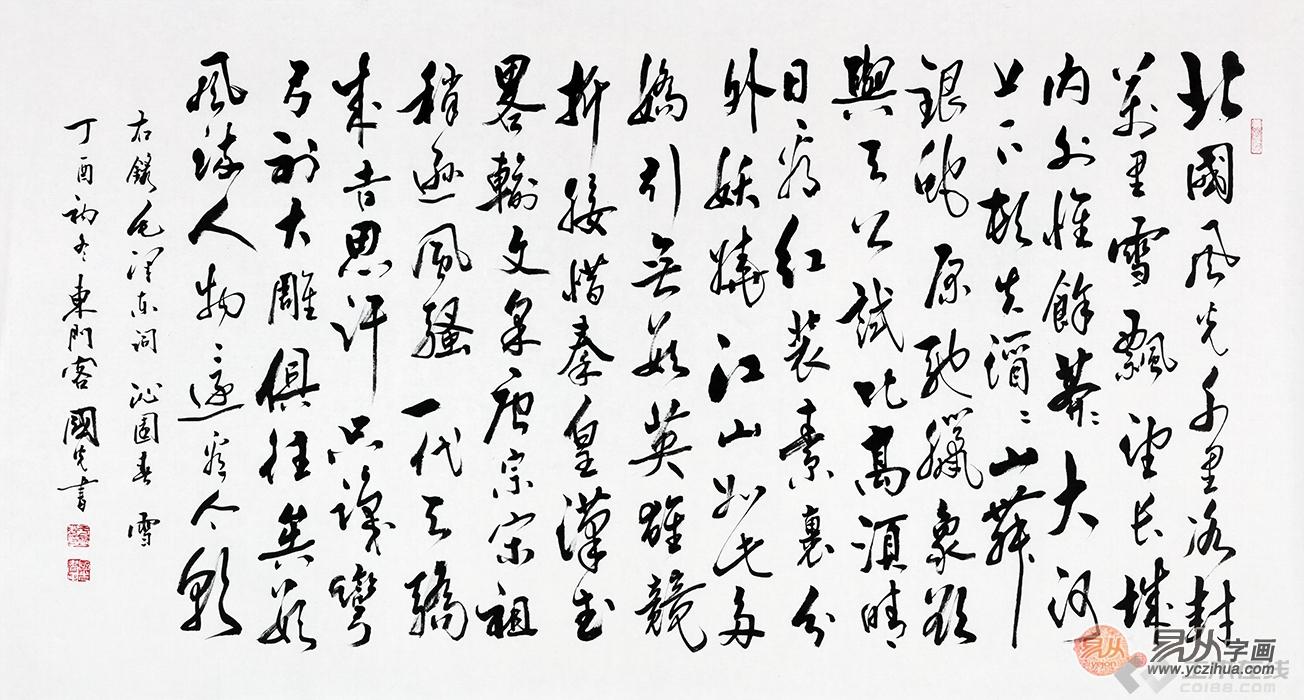 北國風光千里冰封
萬里雪飄望長城
内外惟餘莽莽大河
上下頓失滔滔山舞
銀蛇原馳臘象欲
與天公試比高須晴
日看紅裝素裹分
外妖嬈江山如此多
嬌引無數英雄競
折腰惜秦皇漢武
畧輸文采唐宗宋祖
稍遜風騷一代天驕
成吉思汗只識彎
弓射大雕俱往矣數
風流人物還看今朝
右錄毛澤东詞 沁園春 雪
丁酉初冬東門客國先書
易从 yejon 易从字画
www.yczihua.com
在线
coi88.com